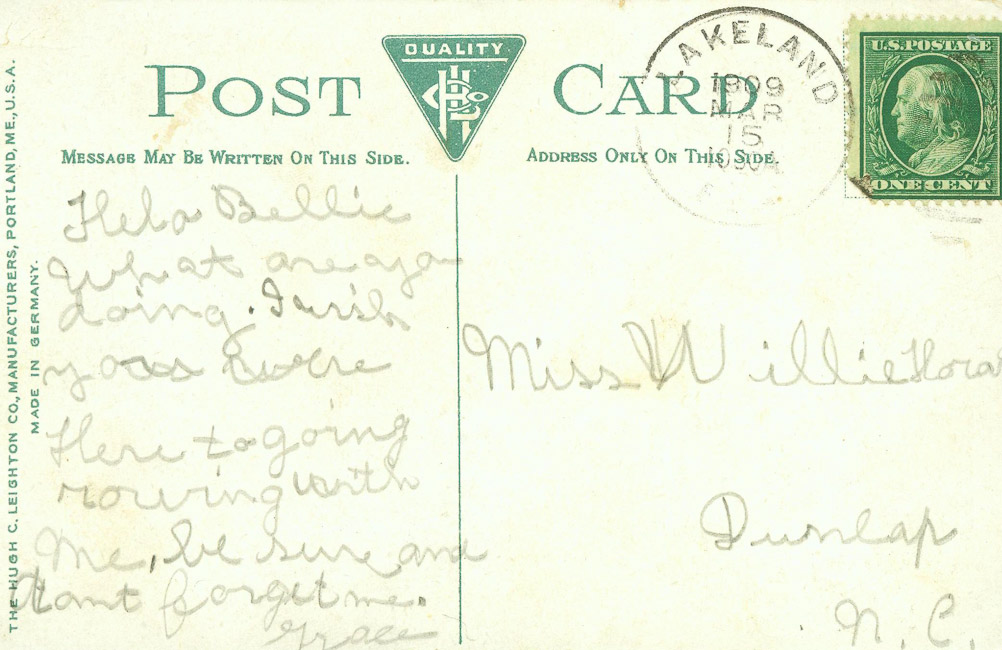 POST CARD
QUALITY
MESSAGE MAY BE WRITTEN ON THIS SIDE.
ADDRESS ONLY ON THIS SIDE.
LAKELAND
1909
MAR
15
U.S. POSTAGE
ONE CENT
THE HUGH C. LEIGHTON CO., MANUFACTURERS, PORTLAND, ME., U.S.A.
MADE IN GERMANY.
Helo Bellie
What are you
doing. I wish
you were
Here to going
rowing with
Me, be sure and
dont forget me.
Grace
Miss Willie
Dunlap
N. C.